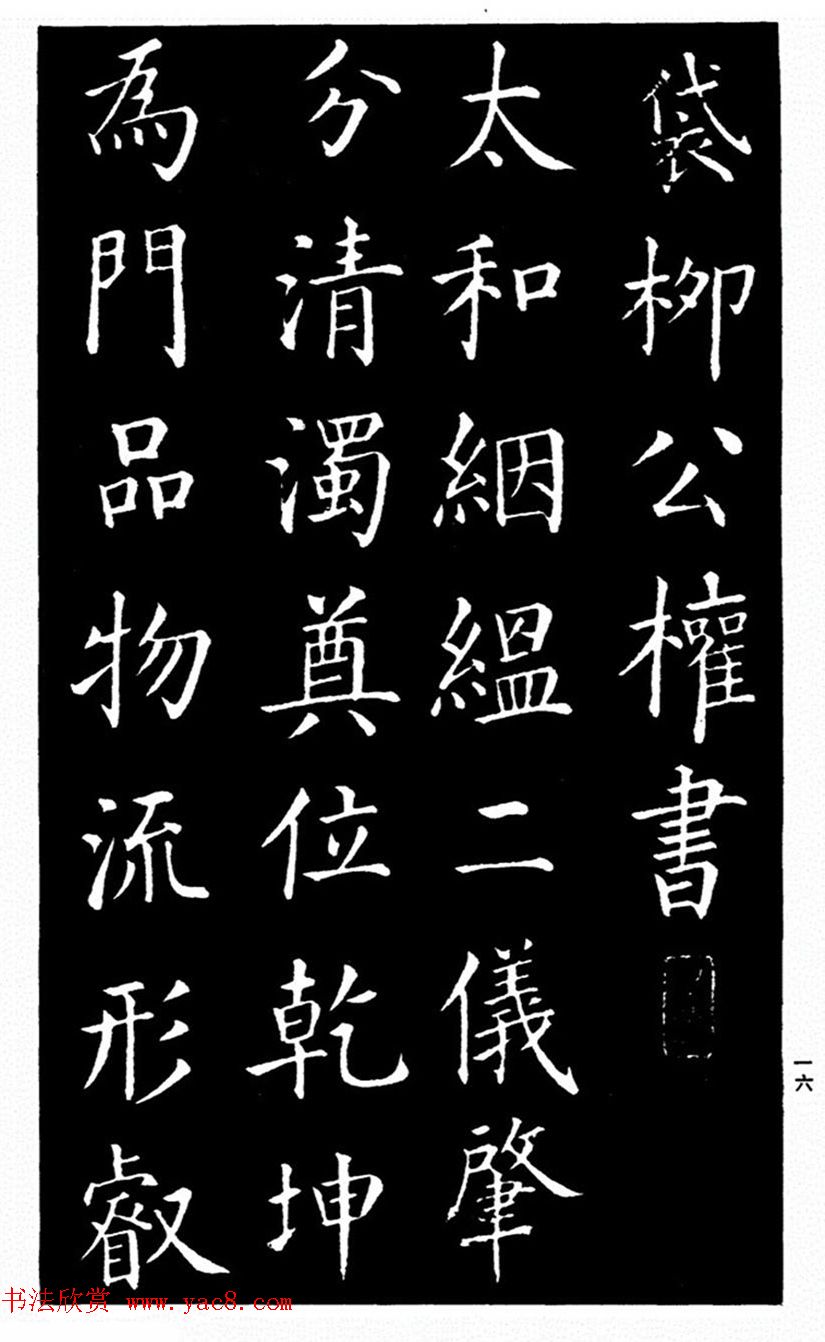 袋柳公權書
太和絪緼二儀肇
分清濁奠位乾坤
為門品物流形叡
一六
书法欣赏 www.yac8.com